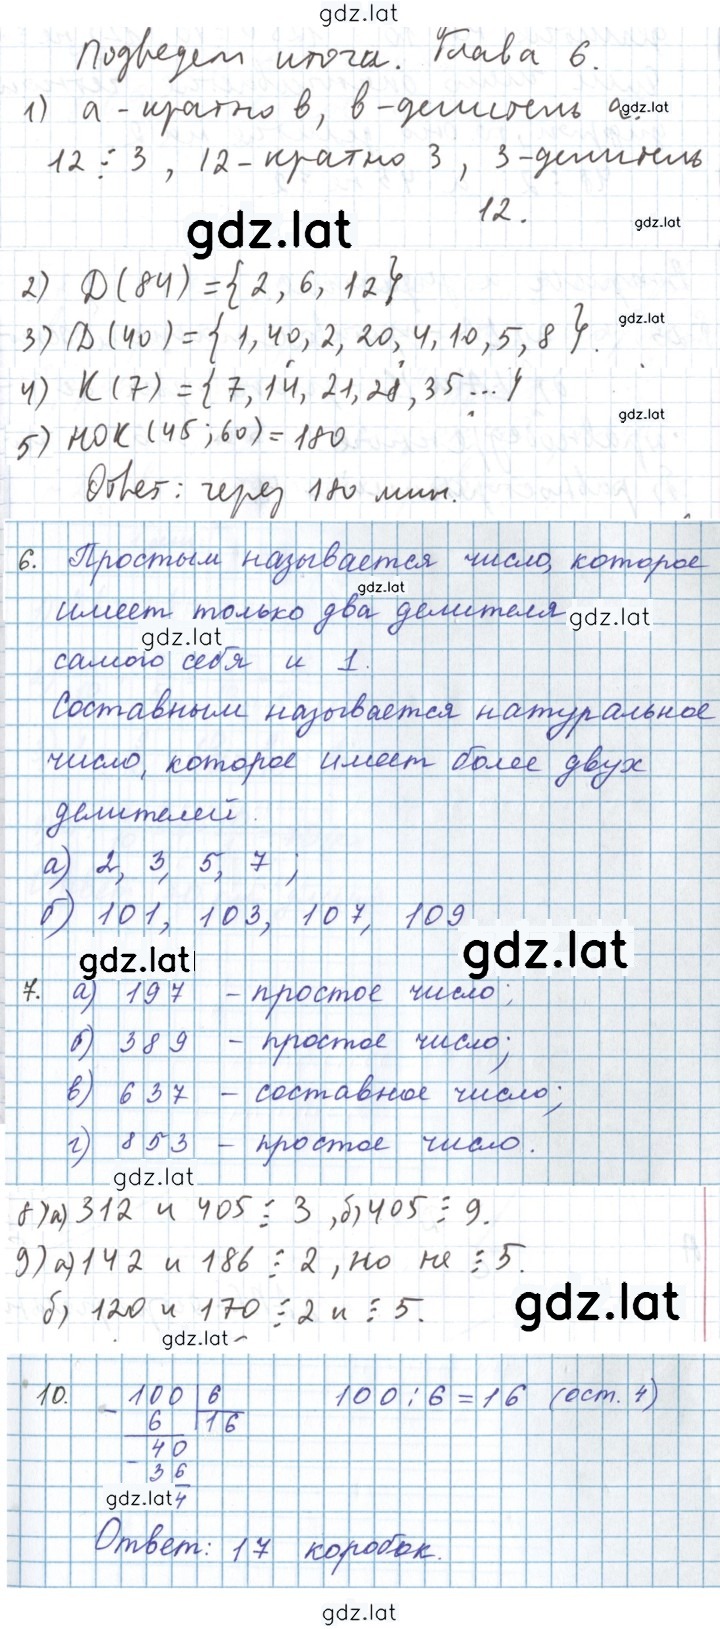 gdz.lat
Подведем итоги. Глава 6.
1) а - кратно в, в - делитель а.
gdz.lat
12 ⋮ 3, 12 - кратно 3, 3 - делитель
12.
gdz.lat
gdz.lat
2) Д(84) = {2, 6, 12}
gdz.lat
3) Д(40) = {1, 40, 2, 20, 4, 10, 5, 8}.
4) К(7) = {7, 14, 21, 28, 35...}
gdz.lat
5) НОК (45; 60) = 180
Ответ: через 180 мин.
6. Простым называется число, которое
gdz.lat
имеет только два делителя
gdz.lat
gdz.lat
самого себя и 1.
Составным называется натуральное
число, которое имеет более двух
делителей.
а) 2, 3, 5, 7;
б) 101, 103, 107, 109
gdz.lat
gdz.lat
7. а) 197 - простое число;
б) 389 - простое число;
в) 637 - составное число;
г) 853 - простое число.
gdz.lat
8) а) 312 и 405 ⋮ 3, б) 405 ⋮ 9.
9) а) 142 и 186 ⋮ 2, но не ⋮ 5.
б) 120 и 170 ⋮ 2 и ⋮ 5.
gdz.lat
gdz.lat
10. - 100 | 6 100 : 6 = 16 (ост. 4)
6 | 16
40
- 36
gdz.lat 4
Ответ: 17 коробок.
gdz.lat